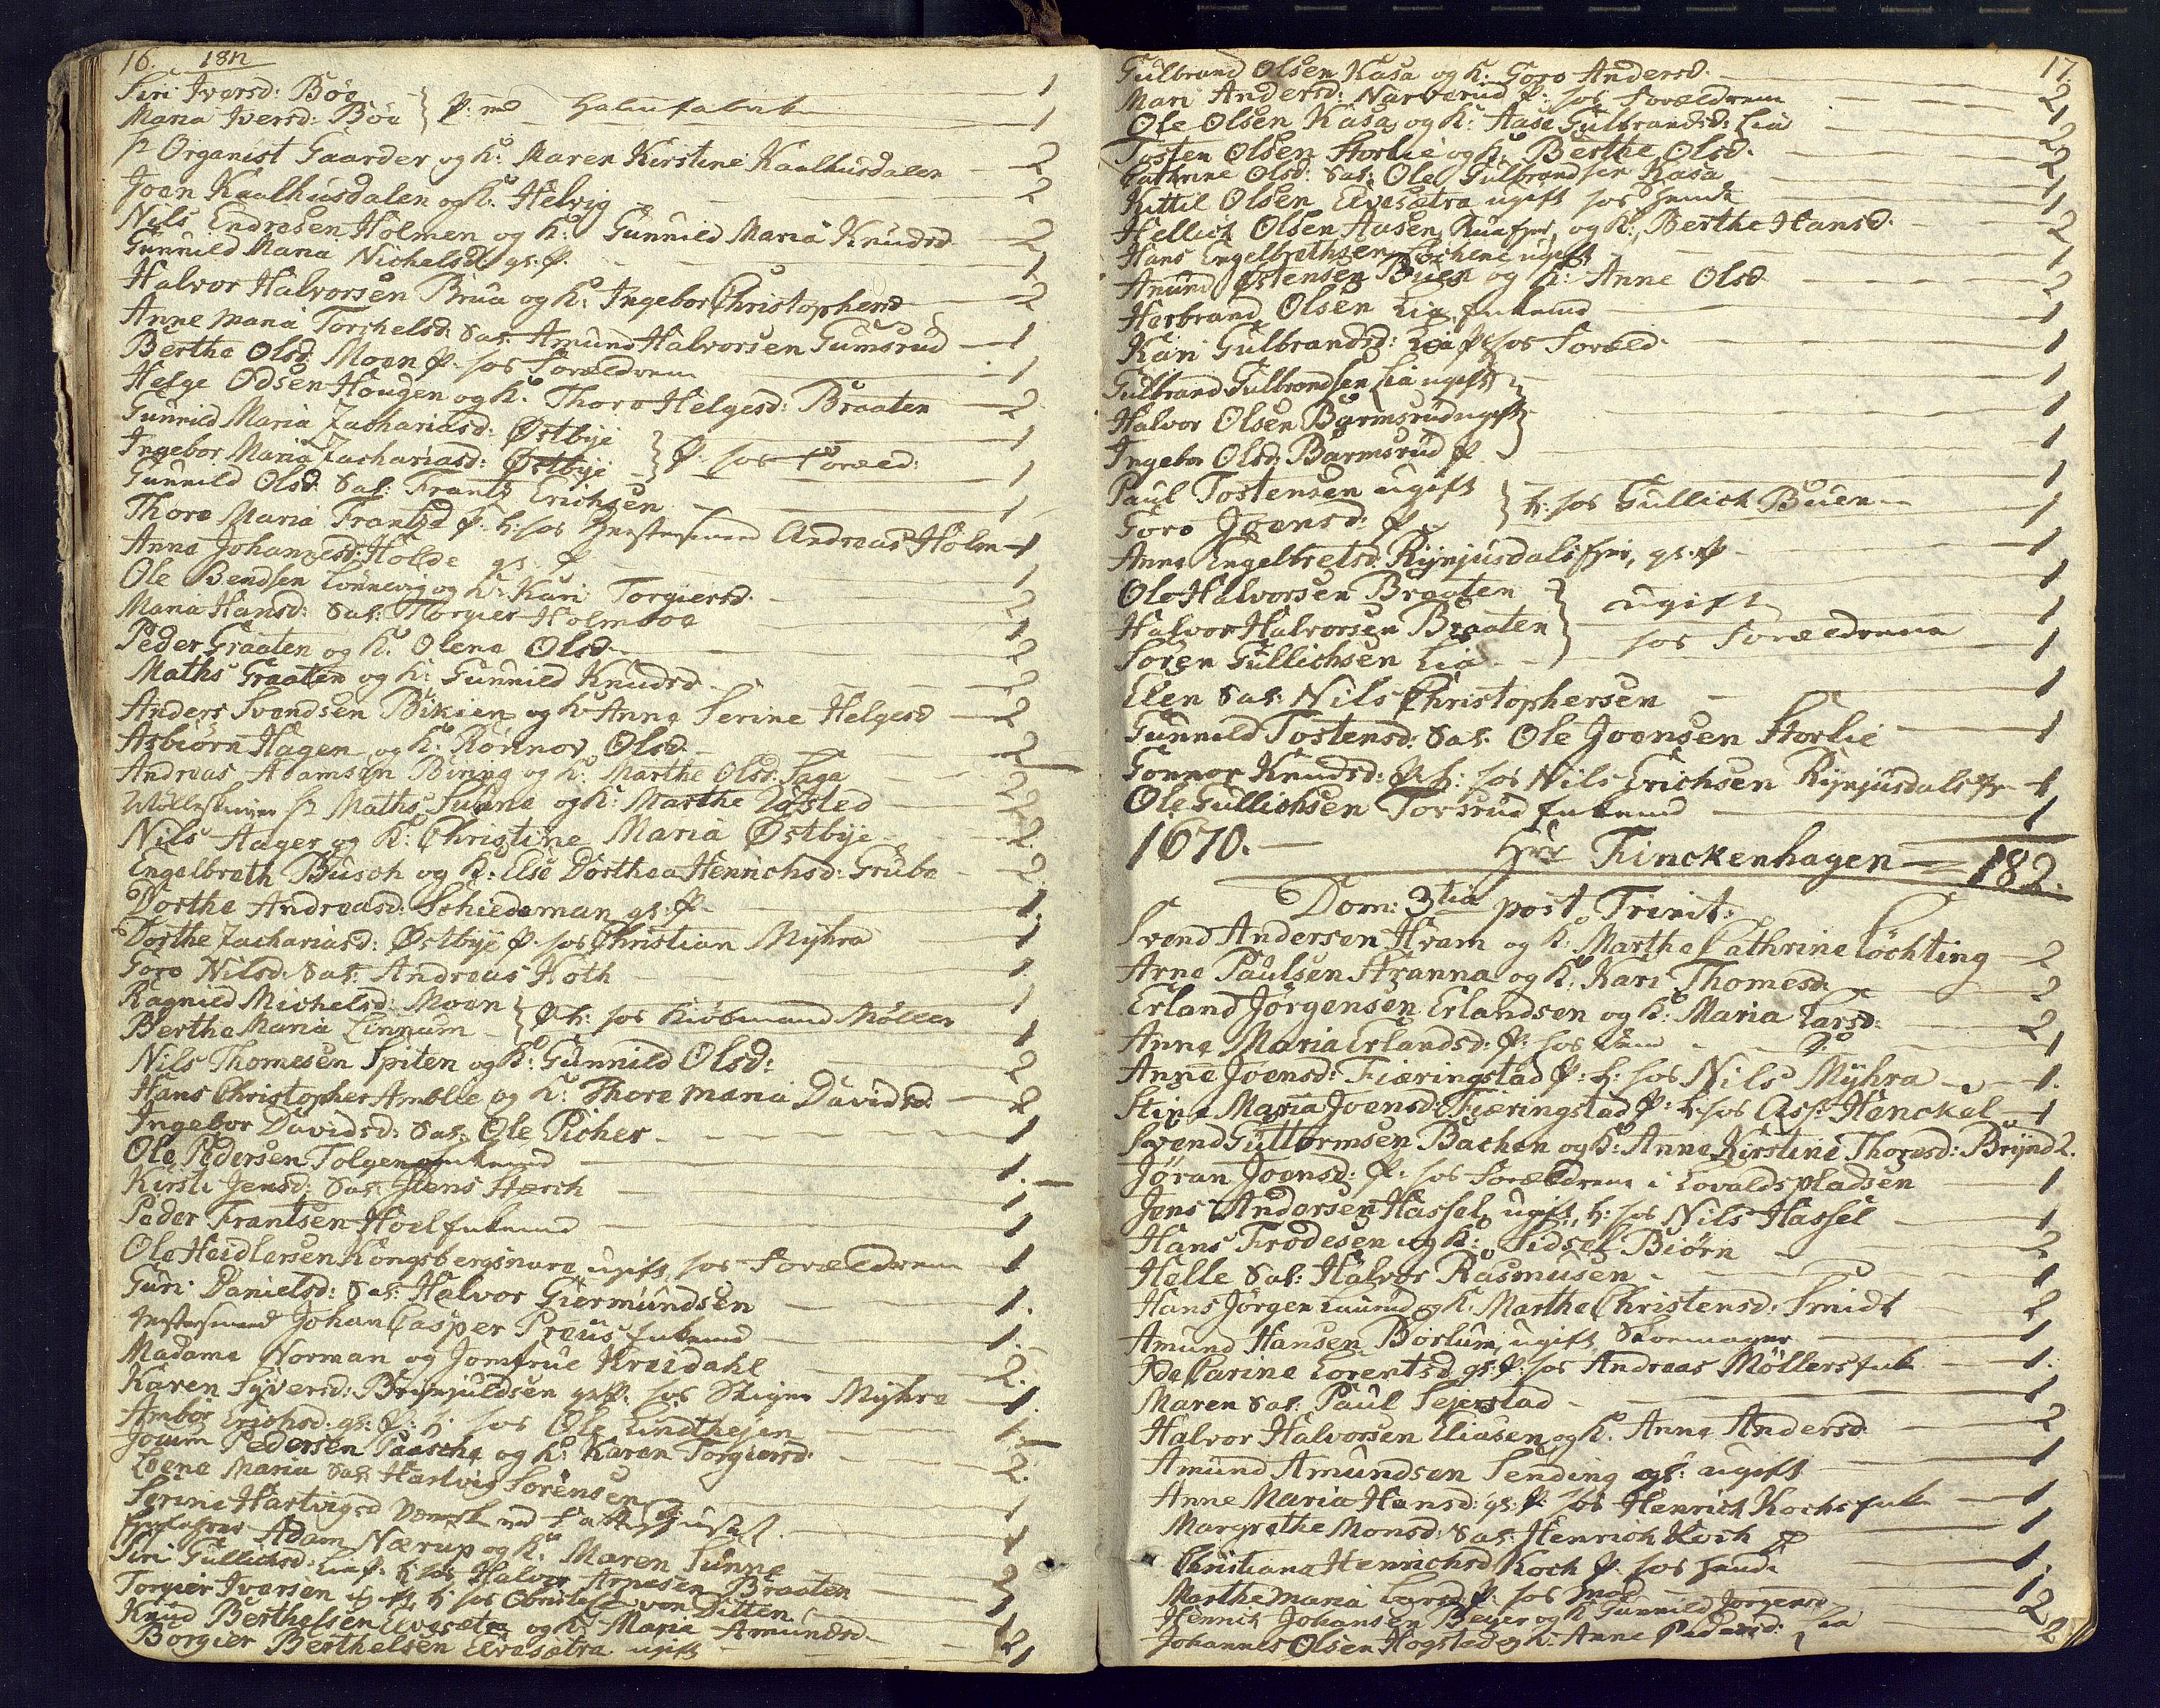 16. 18n
Siri Iversd: Böe 1
Maria Iversd: Böe } P: 1
Sr Organist Gaarder og K: Maren Kirstine Kaalhusdalen 2
Joen Kaalhusdalen og K: Helvig 2
Nils Endresen Holmen og K: Gunnild Maria Knudsd 2
Gunnild Maria Nichelsd gs: P. 1
Halvor Halvorsen Brua og K: Ingebor Christophersd 2
Anne Maria Torchelsd: Sal: Amund Halvorsen Gumsrud 1
Berthe Olsd: Moen P. hos Forældrene 1
Helge Odsen Hougen og K: Thoro Helgesd: Braaten 2
Gunnild Maria Zachariasd: Østbye 1
Ingebor Maria Zachariasd: Østbye } P: hos Foræld: 1
Gunnild Olsd. Sal: Frantz Erichsen 1
Thore Maria Frantzd P. h: hos Andreas Holm 1
Anne Johannesd: Holde gs: P 1
Ole Bendsen Lönnevig og K: Kari Torgiersd. 2
Maria Hansd: Sal: Torgier Holmboe 1
Peder Graaten og K: Olena Olsd. 2
Maths Graaten og K: Gunnild Knudsd 2
Anders Svendsen Bikien og K: Anne Serine Helgesd 2
Asbiörn Hagen og K: Rönnov Olsd. 2
Andreas Adamsen Biring og K: Marthe Olsd: Saga 2
Sr Maths Sunne og K: Marthe Løsted 2
Nils Aager og K: Christine Maria Østbye 2
Engelbreth Busch og K: Else Dorthea Henrichsd: Grube 2.
Dorthe Andreasd: Schiedeman gs: P. 1.
Dorthe Zachariasd: Østbye P. hos Christian Myhra 1
Goro Nilsd: Sal: Andreas Koth 1.
Ragnild Michelsd: Moen 1
Berthe Maria Linnum } P h: hos Kiöbmand Møller 1
Nils Thomesen Spiten og K: Gunnild Olsd: 2
Hans Christopher Amble og K: Thore Maria Davidsd. 2
Ingebor Davidsd: Sal: Ole Picher 1
Ole Pedersen Tolgen enkemd 1.
Kirsti Jensd: Sal: Jens Stærch 1
Peder Frantsen Hoel enkemd 1
Ole Heidlersen Kongsbergsnare ugift hos Forældrene 1
Guri Danielsd: Sal: Halvor Giermundsen 1.
Johan Casper Preus enkemd 1.
Madame Norman og Jomfrue Kreidahl 2.
Karen Syversd: Brynjuldsen gs: P: hos Stiger Myhre 1.
Ambor Erichsd: gs: P: h: hos Ole Lindthejen 1.
Joen Pedersen Paasche og K: Karen Torgiersd. 2.
Loene Maria Sal: Hartvig Sörensen 1
Serine Hartvigsd 1
Adam Nærup og K: Maren Sunne 2
Siri Gullichsd: Lia P: h: hos Halvor Arnesen Braaten 1
Torgier Iversen h: hos von Ditten 1
Knud Berthelsen Elvesætra og K: Maria Amundsd. 2
Börgier Berthelsen Elvesætra ugift 1
17.
Gulbrand Olsen Kasa og K: Goro Andersd. 2
Mari Andersd: Narverud P: hos Forældrene 1
Ole Olsen Kasa og K: Aase Gulbrandsd: Lia 2
Tosten Olsen Storlie og K: Berthe Olsd. 2
Cathrine Olsd: Sal: Ole Gulbrandsen Kasa 1
Kittil Olsen Elvesætra ugift hos hende 1
Hellich Olsen Aasen og K: Berthe Hansd. 2
Hans Engelbrethsen Löchene ugift 1
Amund Østensen Buen og K: Anne Olsd. 2
Herbrand Olsen Lia, enkemd 1
Kari Gulbrandsd: Lia P: hos Foræld. 1
Gulbrand Gulbrandsen Lia ugift 1
Halvor Olsen Barmsrud ugift 1
Ingebor Olsd: Barmsrud P. 1
Paul Tostensen ugift 1
Goro Joensd: P. } h: hos Gullich Buen 1
Anne Engelbretsd: Rynjusdals gs: P 1
Ole Halvorsen Braaten 1
Halvor Halvorsen Braaten } ugift 1
Sören Gullichsen Lia hos Forældrene 1
Elen Sal: Nils Christophersen 1
Gunnild Tostensd: Sal: Ole Joensen Storlie 1
Gonnor Knudsd: P. h: hos Nils Erichsen Rynjusdals 1
Ole Gullichsen Torsrud enkemd 1
1670. Hr Finckenhagen 182.
Dom: 3tia post Trinit:
Svend Andersen Hram og K: Marthe Cathrine Löchting 2
Arne Paulsen Stranna og K: Kari Thomesd. 2
Erland Jörgensen Erlandsen og K: Maria Larsd: 2
Anne Maria Erlandsd: P: hos dem 1
Anne Joensd: Fiæringstad P: h: hos Nils Myhra 1.
Stine Maria Joensd: Fiæringstad P: h: hos Ass: Henckel 1
Svend Guttormsen Bachen og K: Anne Kirstine Thoresd: Brynd 2.
Jöran Joensd: P: hos Forældrene i Lovaldspladsen 1
Jens Andersen Hassel, ugift, h: hos Nils Hassel 1
Hans Frodesen og K: Sidsel Biörn 2
Helle Sal: Halvor Rasmusen 1
Hans Jörgen Laurud og K: Marthe Christensd: Smidt 2
Amund Hansen Borlum, ugift Skoemager 1
Ide Carine Lorentsd gs: P: hos Andreas Möllers enke 1.
Maren Sal: Paul Sejerstad 1
Halvor Halvorsen Eliasen og K: Anne Andersd. 2
Amund Amundsen Sending gs: ugift 1
Anne Maria Hansd: gs: P: hos Henrich Kochs enke 1
Margrethe Monsd: Sal: Henrich Koch 1
Christiana Henrichsd Koch P. hos hende 1.
Marthe Maria P. hos 1
Henrich Johansen Beyer og K: Gunnild Jörgensd 2
Johannes Olsen Hogsted og K: Anne Pedersd: 2